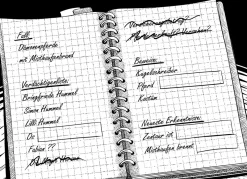 Fall
Dämonenpferde
mit Misthaufenbrand
Verdächtigenliste:
Bringfriede Hummel
Simon Hummel
Lilli Hummel
Dr.
Fabian ??
Beweise:
Kugelschreiber
Pferd
Kostüm
Neueste Erkenntnisse:
Zentaur ist
Misthaufen brennt